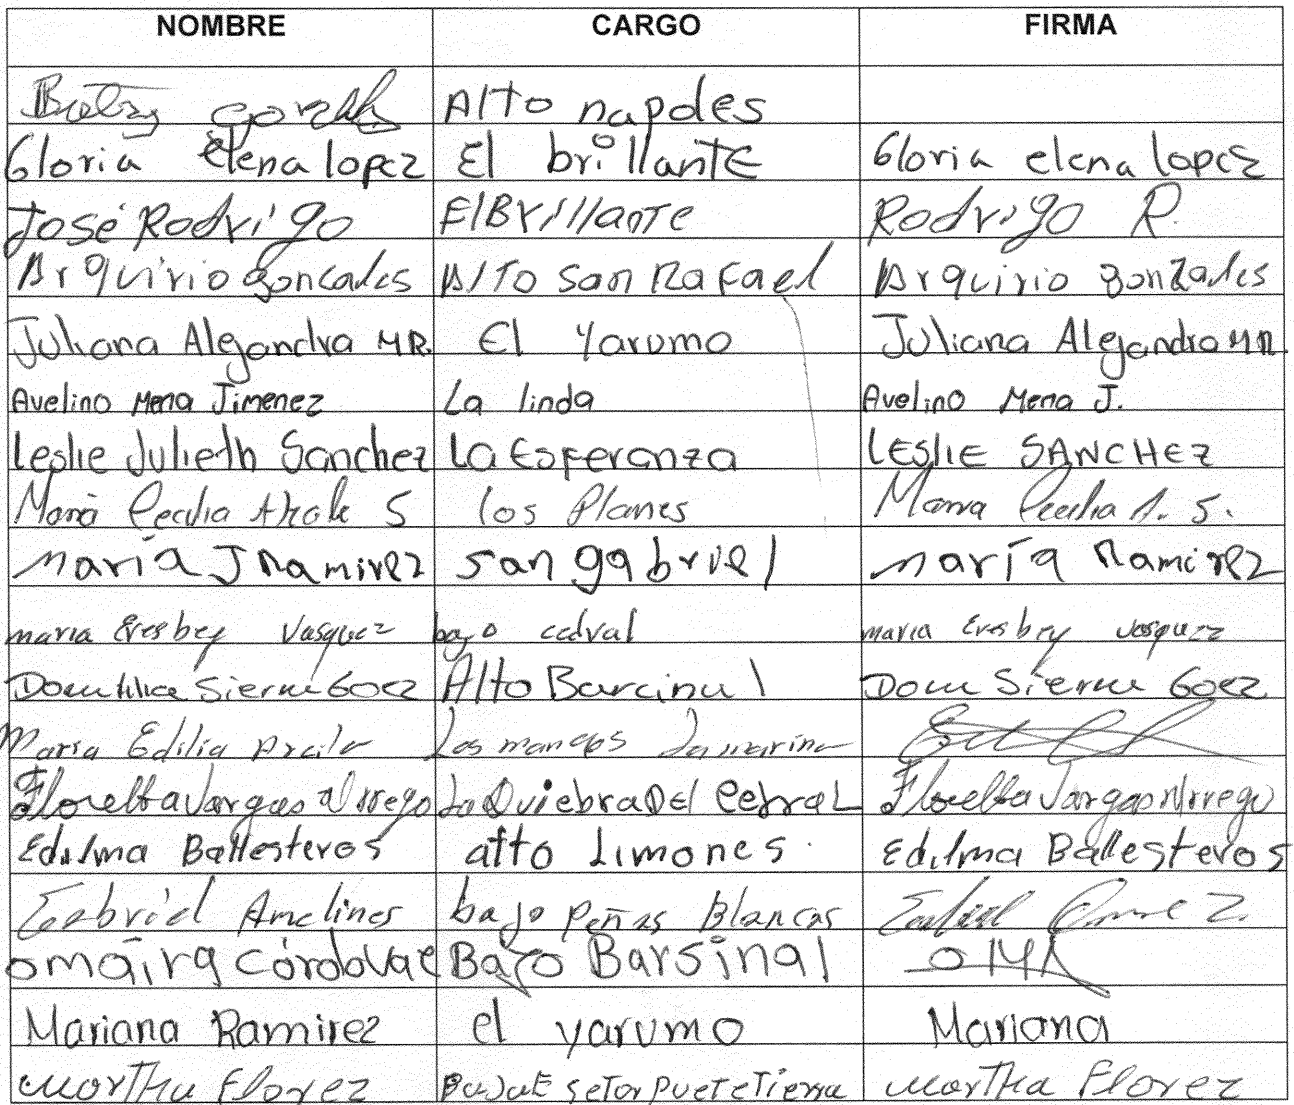 NOMBRE CARGO FIRMA
Alto napoles
Gloria elena lopez El brillantE Gloria elena lopez
José Rodrigo El Brillante Rodrigo R.
Arquirio goncales Alto san Rafael Arquirio gonzales
Juliana Alejandra M R. El Yarumo Juliana Alejandra M R
Avelino Mena Jimenez La linda Avelino Mena J.
Leslie Julieth Sanchez La Esperanza LESLIE SANCHEZ
Maria Cecilia S los Planes Maria Cecilia A. S.
maría J Ramirez san gabriel maría Ramirez
maria Eresbey Vasquez bajo maria Eresbey vasquez
Sierra Goez Alto Barcinal Sierra Goez
Maria Edilia Los mangos
Vargas La Quiebra DEl Vargas
Edilma Ballesteros alto Limones. Edilma Ballesteros
Gabriel bajo peñas Blancas
omáira córdoba e Bajo Barsinal
Mariana Ramirez el yarumo Mariana
Martha Florez Martha Florez